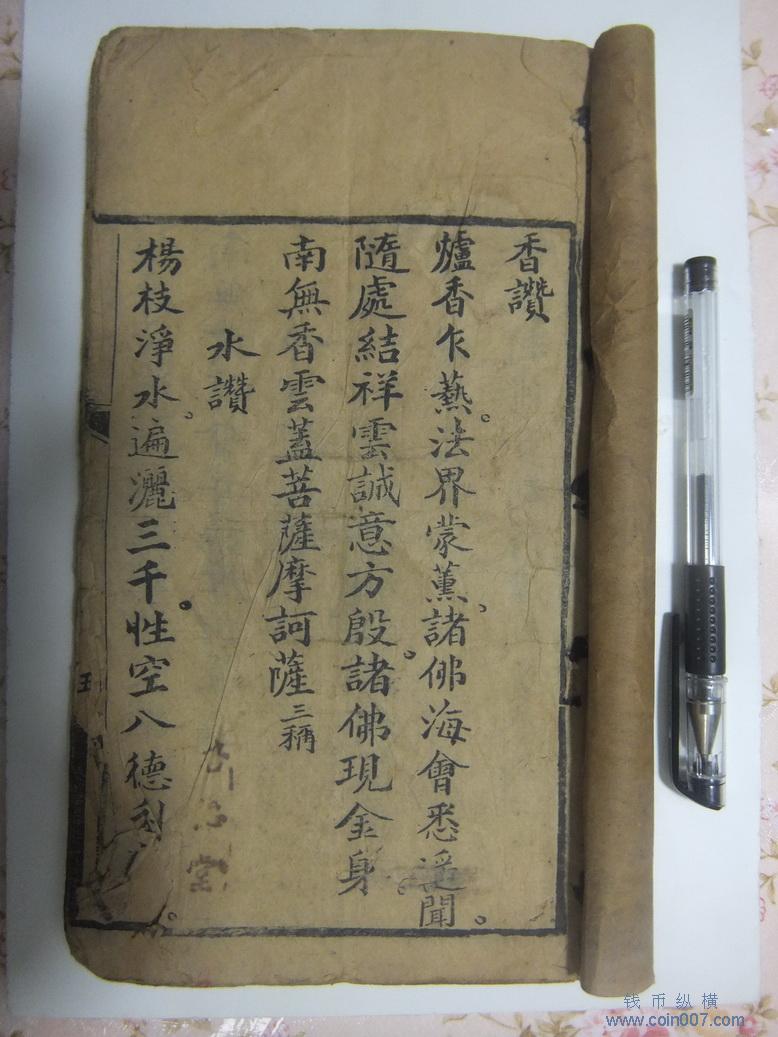 香讚
爐香乍爇。法界蒙薰、諸佛海會悉遥聞。
隨處結祥雲誠意方殷。諸佛現金身。
南無香雲蓋菩薩摩訶薩三稱
水讚
楊枝淨水。遍灑三千。性空八德利
堂
五
钱币纵横
www.coin007.com